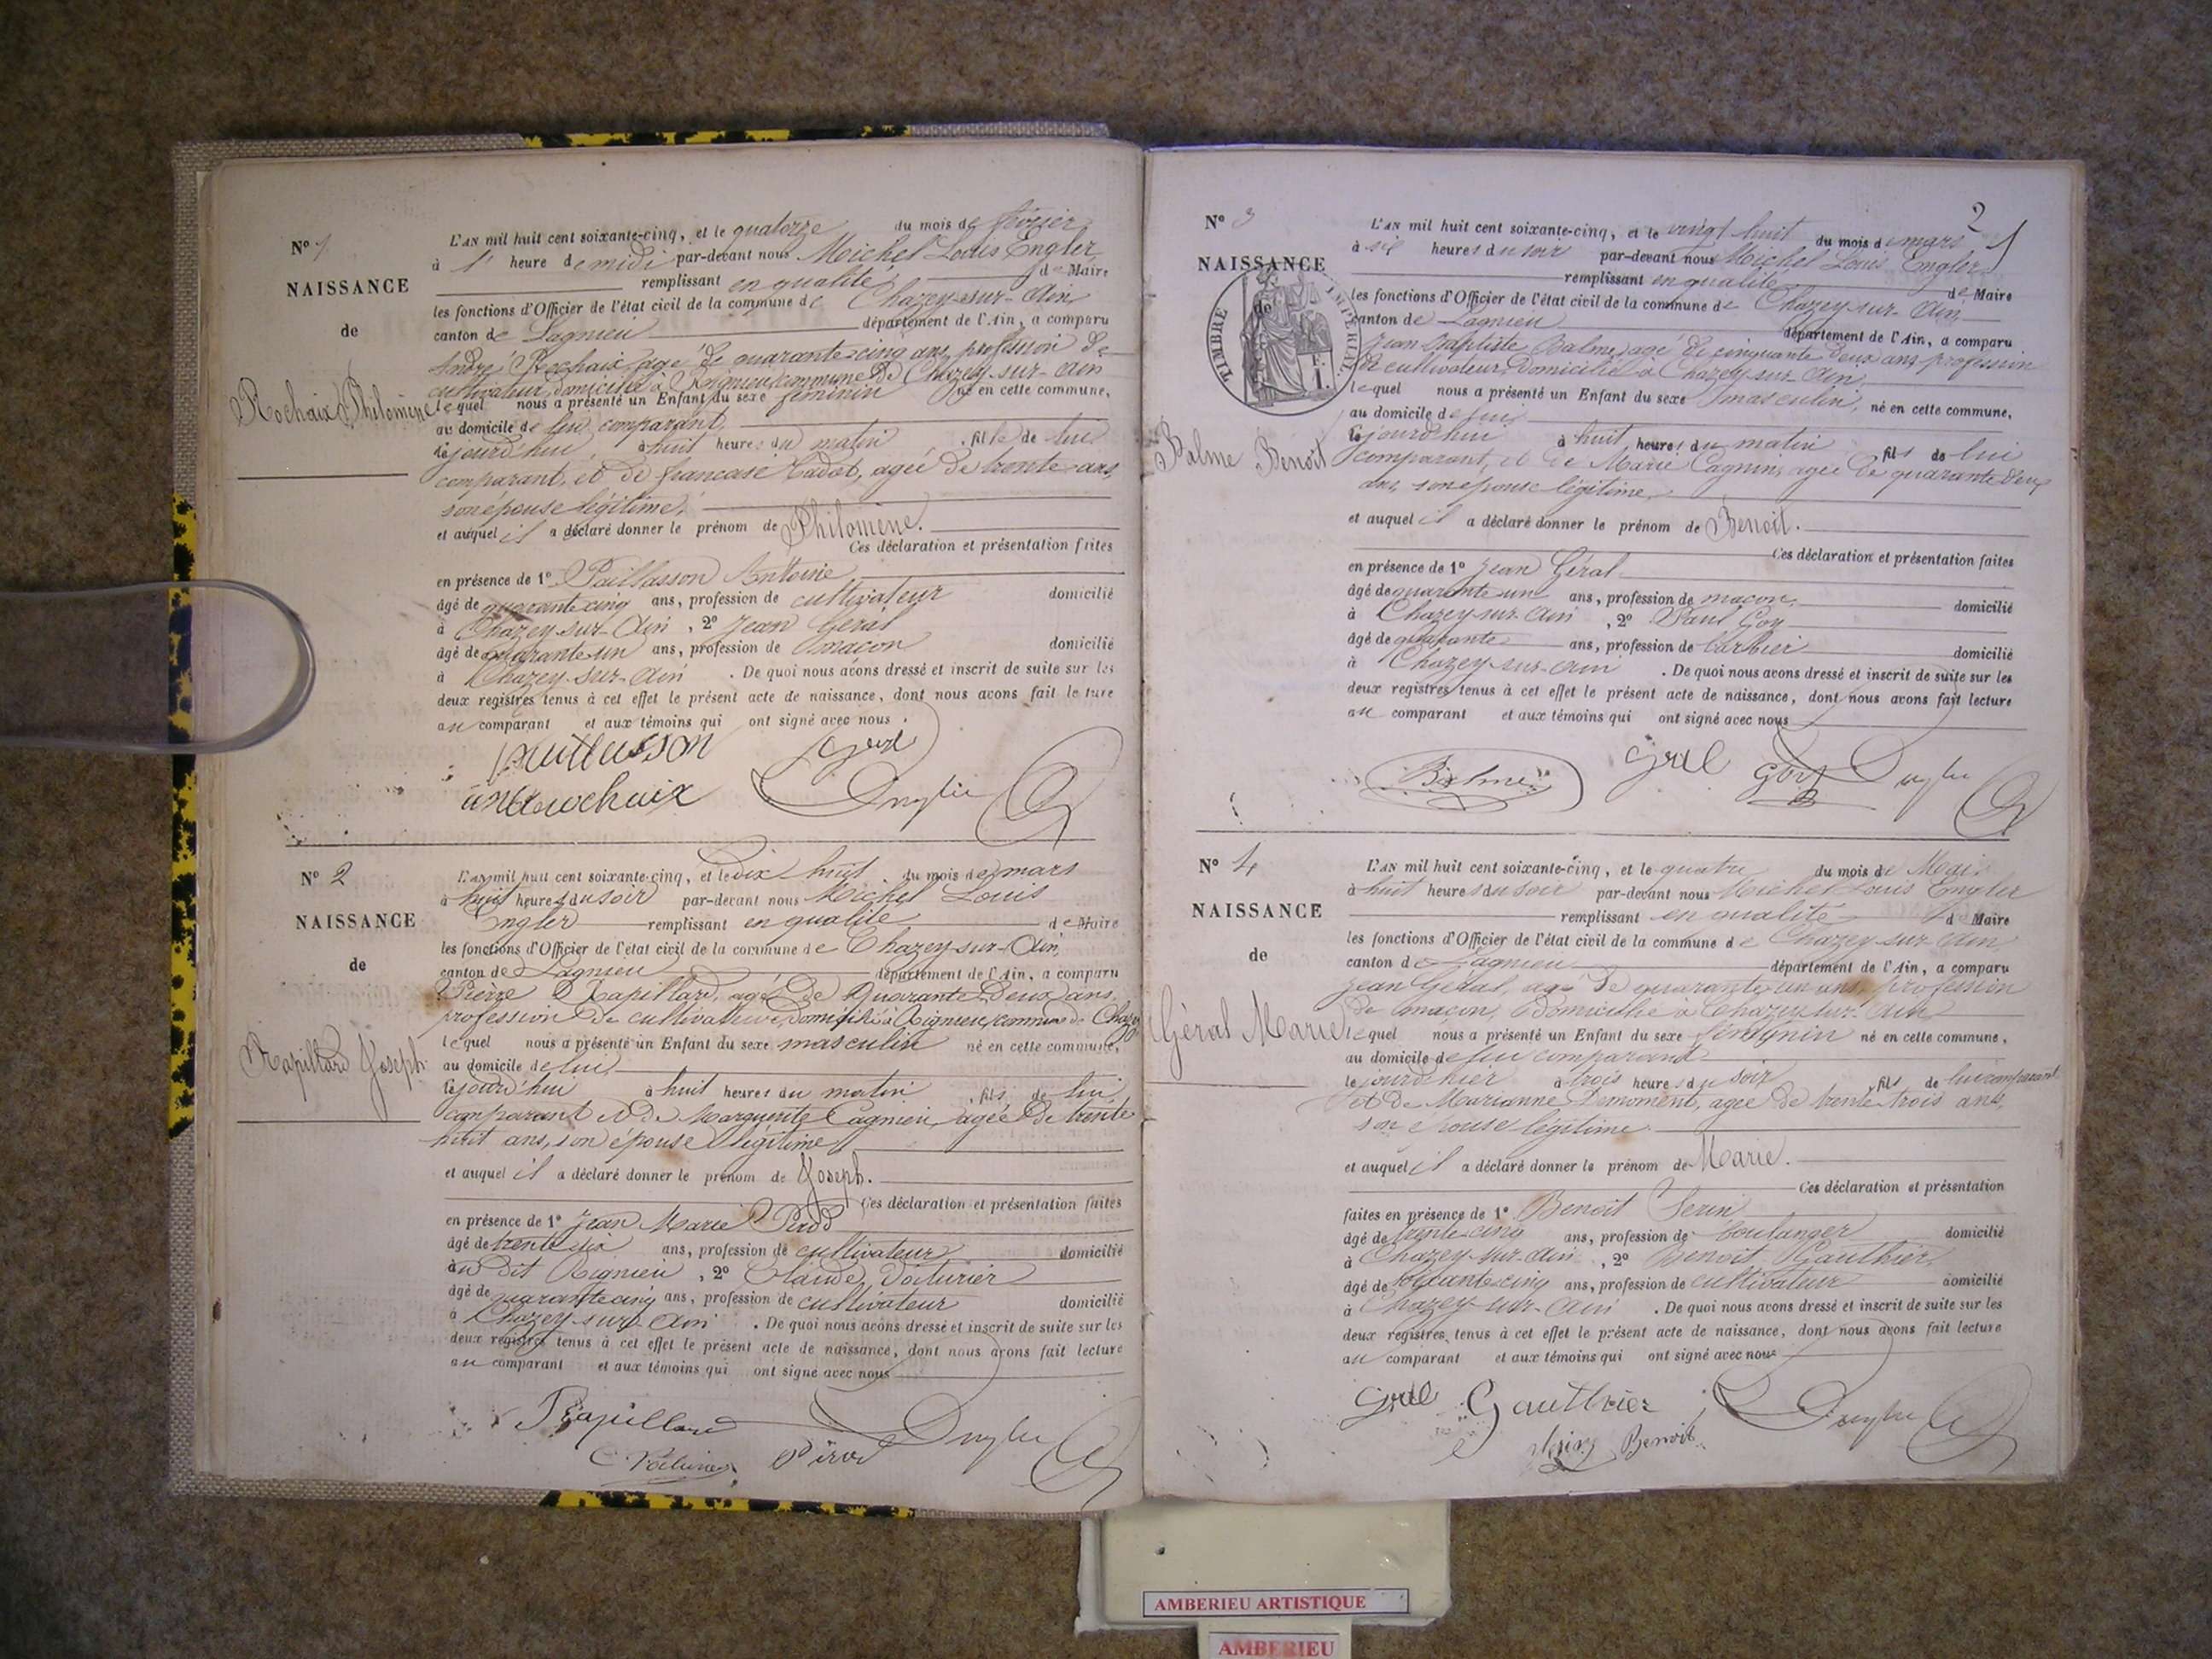 Nº 1
NAISSANCE
de
Rochaix Philomène
L'AN mil huit cent soixante-cinq, et le quatorze du mois de février
à 1 heure de midi par-devant nous Michel Louis Engler
remplissant en qualité de Maire
les fonctions d'Officier de l'état civil de la commune de Chazey-sur-Ain
canton de Lagnieu département de l'Ain, a comparu
André Rochaix, agé de quarante-cinq ans, profession de
cultivateur, domicilié à Rignieu, commune de Chazey-sur-Ain
lequel nous a présenté un Enfant du sexe féminin né en cette commune,
au domicile de lui comparant
le jourd'hui à huit heures du matin, fille de lui
comparant, et de francoise Cadot, agée de trente ans,
son épouse légitime,
et auquel il a déclaré donner le prénom de Philomène.
Ces déclaration et présentation faites
en présence de 1º Paillasson Antoine
âgé de quarante cinq ans, profession de cultivateur domicilié
à Chazey-sur-Ain, 2º Jean Géral
âgé de quarante un ans, profession de maçon domicilié
à Chazey-sur-Ain. De quoi nous avons dressé et inscrit de suite sur les
deux registres tenus à cet effet le présent acte de naissance, dont nous avons fait lecture
au comparant et aux témoins qui ont signé avec nous.
paillasson Géral
Rochaix Engler
Nº 2
NAISSANCE
de
Rapillard Joseph
L'AN mil huit cent soixante-cinq, et le dix huit du mois de mars
à huit heures du soir par-devant nous Michel Louis
Engler remplissant en qualité de Maire
les fonctions d'Officier de l'état civil de la commune de Chazey-sur-Ain,
canton de Lagnieu département de l'Ain, a comparu
Pierre Rapillard, agé de Quarante Deux ans,
profession de cultivateur, domicilié à Rignieu, commune de Chazey
lequel nous a présenté un Enfant du sexe masculin né en cette commune,
au domicile de lui
le jourd'hui à huit heures du matin, fils de lui
comparant et de Marguerite Cagnieu, agée de trente
huit ans, son épouse légitime
et auquel il a déclaré donner le prénom de Joseph.
Ces déclaration et présentation faites
en présence de 1º Jean Marie Pirod
âgé de trente six ans, profession de cultivateur domicilié
au dit Rignieu, 2º Claude Voiturier
âgé de quarante cinq ans, profession de cultivateur domicilié
à Chazey-sur-Ain. De quoi nous avons dressé et inscrit de suite sur les
deux registres tenus à cet effet le présent acte de naissance, dont nous avons fait lecture
au comparant et aux témoins qui ont signé avec nous
Rapillard Engler
C Voiturier Pirod
2
Nº 3
NAISSANCE
de
TIMBRE IMPERIAL
Balme Benoît
L'AN mil huit cent soixante-cinq, et le vingt huit du mois de mars
à six heures du soir par-devant nous Michel Louis Engler
remplissant en qualité de Maire
les fonctions d'Officier de l'état civil de la commune de Chazey-sur-Ain,
canton de Lagnieu département de l'Ain, a comparu
Jean Baptiste Balme, agé de cinquante deux ans, profession
de cultivateur, domicilié à Chazey-sur-Ain,
lequel nous a présenté un Enfant du sexe masculin, né en cette commune,
au domicile de lui
le jourd'hui à huit heures du matin fils de lui
comparant, et de Marie Cagnin, agée de quarante deux
ans, son épouse légitime,
et auquel il a déclaré donner le prénom de Benoît.
Ces déclaration et présentation faites
en présence de 1º Jean Géral
âgé de quarante un ans, profession de maçon, domicilié
à Chazey-sur-Ain, 2º Paul Goy
âgé de quarante ans, profession de barbier domicilié
à Chazey-sur-Ain. De quoi nous avons dressé et inscrit de suite sur les
deux registres tenus à cet effet le présent acte de naissance, dont nous avons fait lecture
au comparant et aux témoins qui ont signé avec nous
Balme Géral Goy Engler
Nº 4
NAISSANCE
de
Géral Marie
L'AN mil huit cent soixante-cinq, et le quatre du mois de Mai
à huit heures du soir par-devant nous Michel Louis Engler
remplissant en qualité de Maire
les fonctions d'Officier de l'état civil de la commune de Chazey-sur-Ain
canton de Lagnieu département de l'Ain, a comparu
Jean Géral, agé de quarante un ans, profession
de maçon, Domicilié à Chazey-sur-Ain
lequel nous a présenté un Enfant du sexe féminin né en cette commune,
au domicile de lui comparant
le jourd hier à trois heures du soir fils de lui comparant
et de Marianne Demoment, agée de trente trois ans,
son épouse légitime
et auquel il a déclaré donner le prénom de Marie.
Ces déclaration et présentation
faites en présence de 1º Benoît Serin
âgé de trente-cinq ans, profession de boulanger domicilié
à Chazey-sur-Ain, 2º Benoît Gauthier,
âgé de soixante cinq ans, profession de cultivateur domicilié
à Chazey-sur-Ain. De quoi nous avons dressé et inscrit de suite sur les
deux registres tenus à cet effet le présent acte de naissance, dont nous avons fait lecture
au comparant et aux témoins qui ont signé avec nous
Géral Gauthier Engler
Benoit
AMBERIEU ARTISTIQUE
AMBERIEU